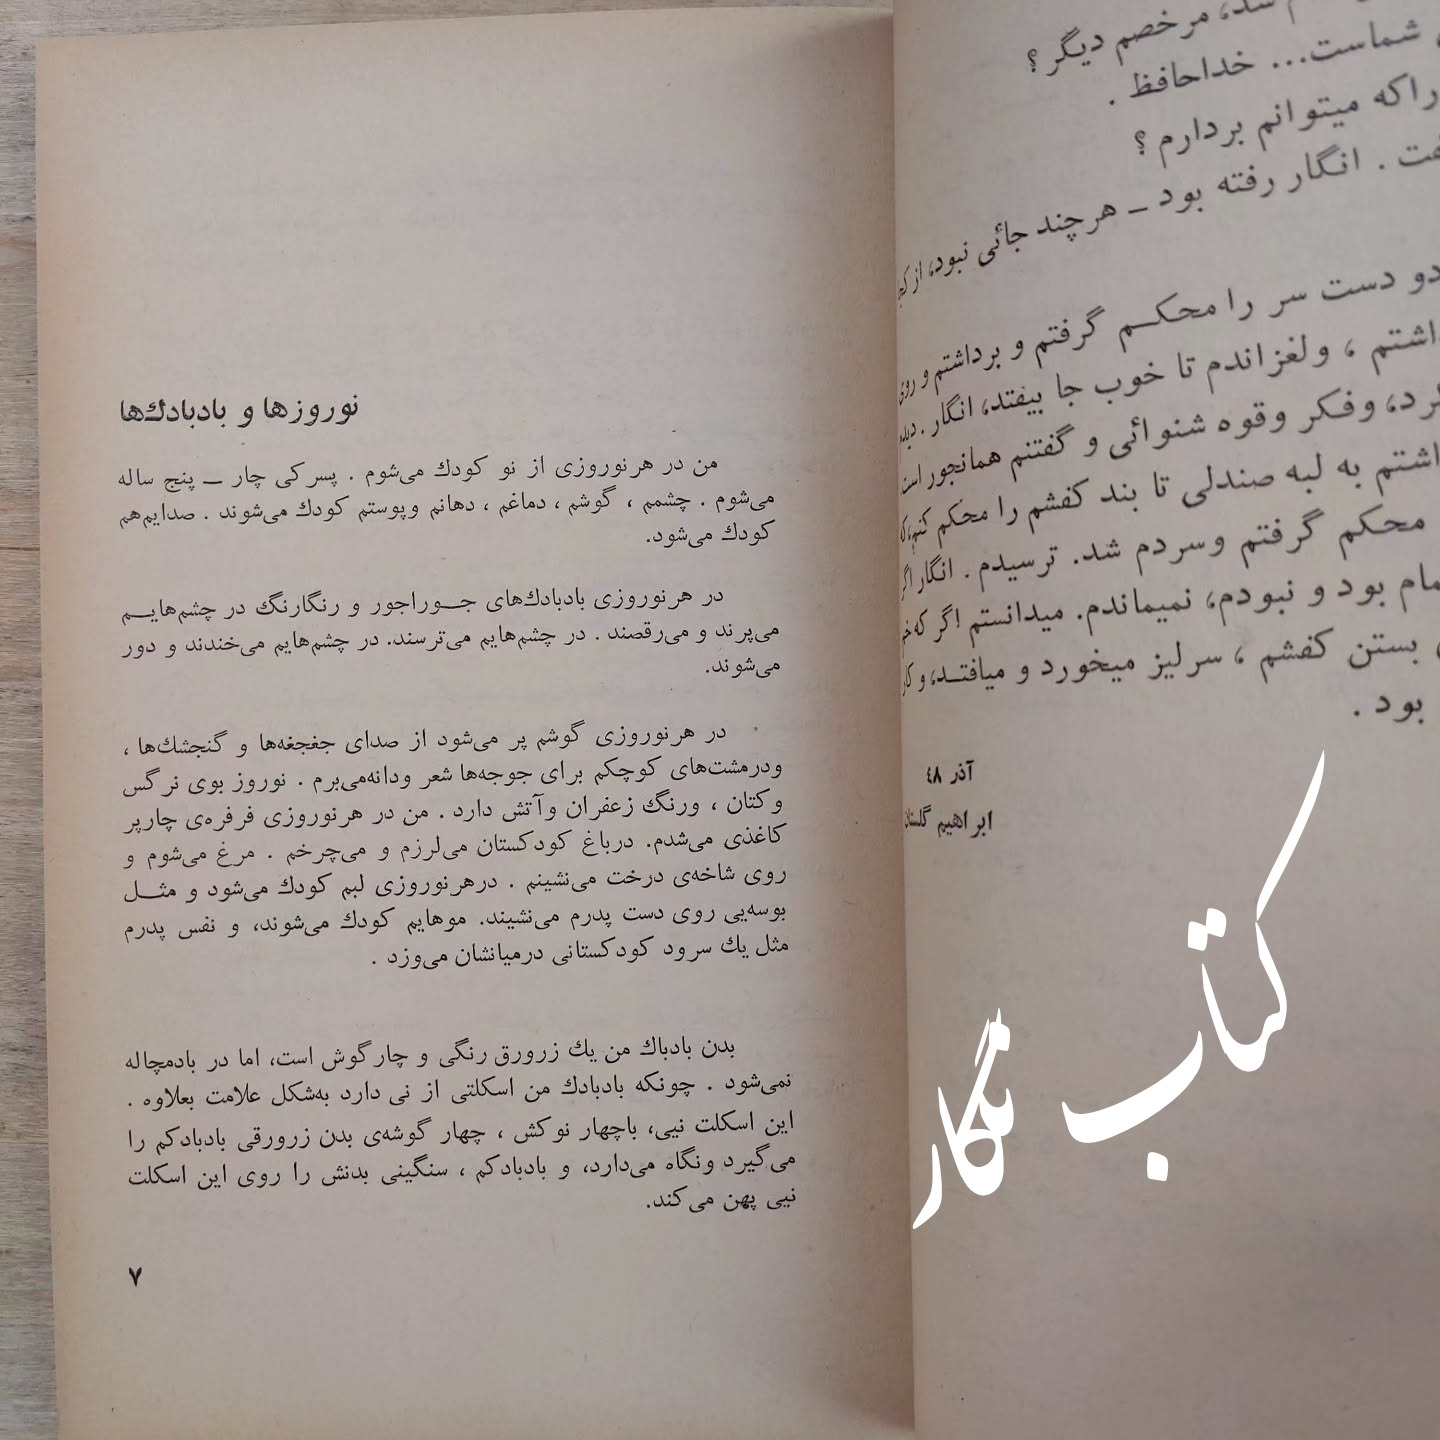 شد، مرخصم دیگر؟
شماست... خداحافظ .
راکه میتوانم بردارم ؟
. انگار رفته بود ــ هرچند جائی نبود، از
دو دست سر را محکــم گرفتم و برداشتم و روی
، ولغزاندم تا خوب جا بیفتد، انگار .
وفکر وقوه شنوائی و گفتنم همانجور است
به لبه صندلی تا بند کفشم را محکم کنم،
محکم گرفتم وسردم شد. ترسیدم . انگار اگر
بود و نبودم، نمیماندم. میدانستم اگر که
بستن کفشم ، سرلیز میخورد و میافتــد، و
بود .
آذر ٤٨
ابراهیم گلستان
کتاب نگار
نوروزها و بادبادك‌ها
من در هرنوروزی از نو کودك می‌شوم . پسرکی چار ــ پنج ساله
می‌شوم . چشمم ، گوشم ، دماغم ، دهانم وپوستم کودك می‌شوند . صدایم‌هم
کودك می‌شود.
در هرنوروزی بادبادك‌های جــوراجور و رنگارنگ در چشم‌هایــم
می‌پرند و می‌رقصند . در چشم‌هایم می‌ترسند. در چشم‌هایم می‌خندند و دور
می‌شوند.
در هرنوروزی گوشم پر می‌شود از صدای جغجغه‌ها و گنجشك‌ها ،
ودرمشت‌های کوچکم برای جوجه‌ها شعر ودانه‌می‌برم . نوروز بوی نرگس
وکتان ، ورنگ زعفران وآتش دارد . من در هرنوروزی فرفره‌ی چارپر
کاغذی می‌شدم. درباغ کودکستان می‌لرزم و می‌چرخم . مرغ می‌شوم و
روی شاخه‌ی درخت می‌نشینم . درهرنوروزی لبم کودك می‌شود و مثــل
بوسه‌یی روی دست پدرم می‌نشیند. موهایم کودك می‌شوند، و نفس پدرم
مثل یك سرود کودکستانی درمیانشان می‌وزد .
بدن بادباك من یك زرورق رنگی و چارگوش است، اما در بادمچاله
نمی‌شود . چونکه بادبادك من اسکلتی از نی دارد به‌شکل علامت بعلاوه .
این اسکلت نیی، باچهار نوکش ، چهار گوشه‌ی بدن زرورقی بادبادکم را
می‌گیرد ونگاه می‌دارد، و بادبادکم ، سنگینی بدنش را روی این اسکلت
نیی پهن می‌کند.
۷